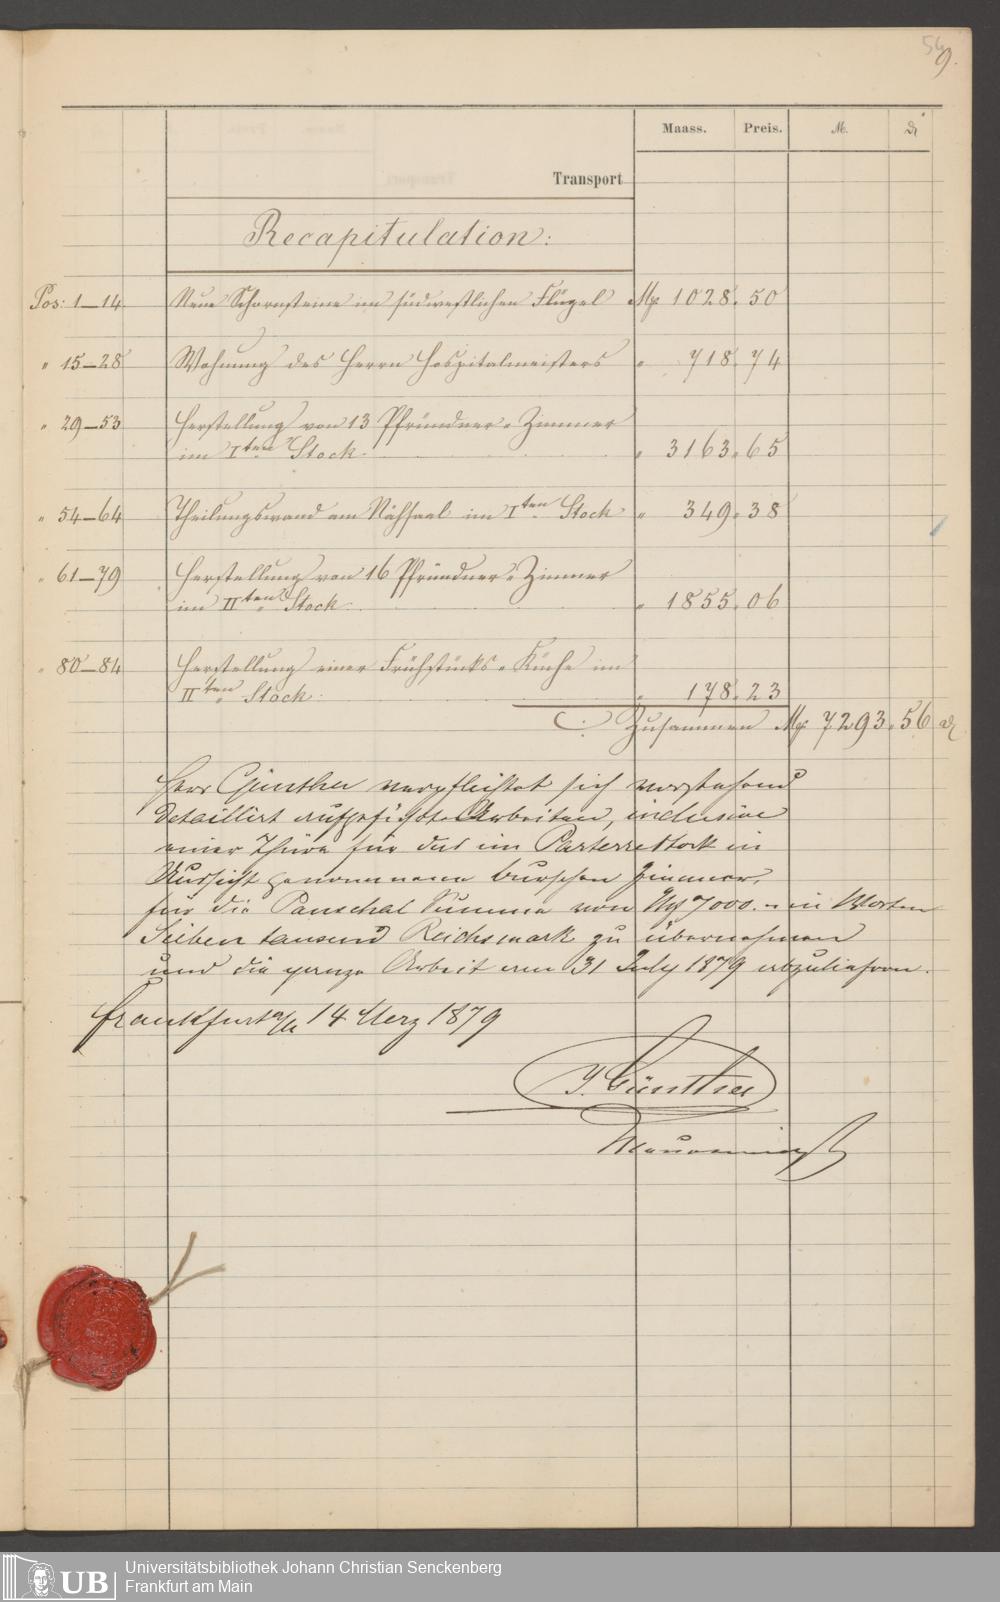 56
9.
Maass. Preis. M. ₰
Transport
Recapitulation:
Pos: 1–14 Neue Schornsteine im südwestlichen Flügel Mp 1028. 50
" 15–28 Wohnung des Herrn Hospitalmeisters " 718. 74
" 29–53 Herstellung von 13 Pfründner-Zimmer
im Iten Stock. " 3163. 65
" 54–64 Theilungswand am Nähsaal im Iten Stock " 349. 38
" 61–79 Herstellung von 16 Pfründner-Zimmer
im IIten Stock. " 1855. 06
" 80–84 Herstellung einer Frühstücks-Küche im
IIten Stock. " 178. 23
Zusammen Mp 7293. 56 ₰
Herr Günther verpflichtet sich vorstehend
detaillirt aufgeführten Arbeiten, inclusive
einer Thüre für das im Parterrestock in
Aussicht genommenen Burschen Zimmer,
für die Pauschal Summe von Mp 7000.– in Worten
Sieben tausend Reichsmark zu übernehmen
und die ganze Arbeit am 31 July 1879 abzuliefern.
Frankfurt a/M 14 Merz 1879
J. Günther
Maurermeister
Universitätsbibliothek Johann Christian Senckenberg
Frankfurt am Main
UB